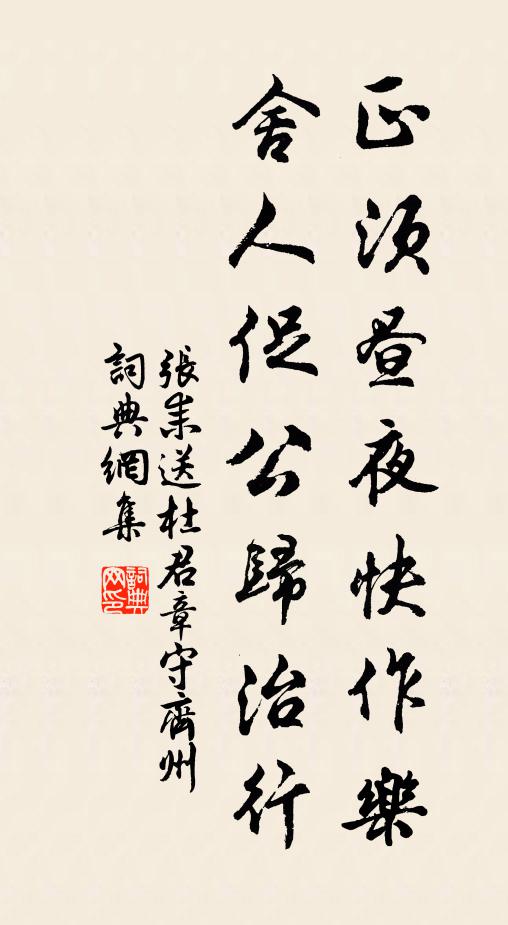 正須晝夜快作樂
舍人促公歸治行
張耒送杜君章守齊州
詞典網集
詞典網印